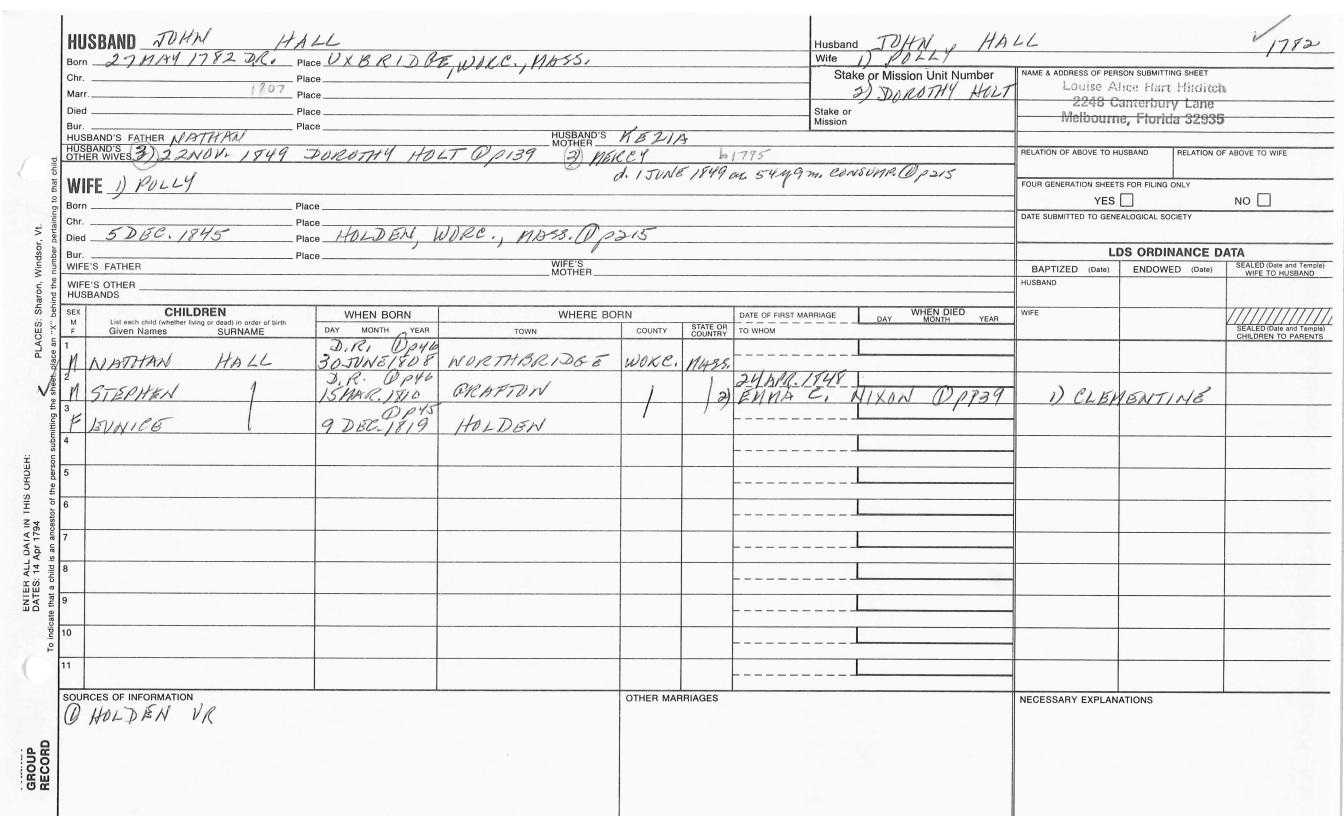 HUSBAND JOHN HALL
Born 27 MAY 1782 D.R. Place UXBRIDGE, WORC., MASS.
Chr. Place
Marr. 1807 Place
Died Place
Bur. Place
HUSBAND'S FATHER NATHAN HUSBAND'S MOTHER KEZIA
HUSBAND'S OTHER WIVES 3) 22 NOV. 1849 DOROTHY HOLT ① p139 2) MERCY b 1795
d. 1 JUNE 1849 ae. 54y 9m. CONSUMP. ① p215
WIFE 1) POLLY
Born Place
Chr. Place
Died 5 DEC. 1845 Place HOLDEN, WORC., MASS. ① p215
Bur. Place
WIFE'S FATHER WIFE'S MOTHER
WIFE'S OTHER HUSBANDS
Husband JOHN HALL 1782
Wife 1) POLLY
2) DOROTHY HOLT
Stake or Mission Unit Number
Stake or Mission
NAME & ADDRESS OF PERSON SUBMITTING SHEET
Louise Alice Hart
2248 Canterbury Lane
Melbourne, Florida 32935
RELATION OF ABOVE TO HUSBAND RELATION OF ABOVE TO WIFE
FOUR GENERATION SHEETS FOR FILING ONLY
YES NO
DATE SUBMITTED TO GENEALOGICAL SOCIETY
LDS ORDINANCE DATA
BAPTIZED (Date) ENDOWED (Date) SEALED (Date and Temple) WIFE TO HUSBAND
HUSBAND
WIFE
SEALED (Date and Temple) CHILDREN TO PARENTS
SEX M F
CHILDREN
List each child (whether living or dead) in order of birth
Given Names SURNAME
WHEN BORN
DAY MONTH YEAR
WHERE BORN
TOWN COUNTY STATE OR COUNTRY
DATE OF FIRST MARRIAGE
TO WHOM
WHEN DIED
DAY MONTH YEAR
1 D.R. ① p46
M NATHAN HALL 30 JUNE 1808 NORTHBRIDGE WORC. MASS.
2 D.R. ① p46 24 APR. 1848
M STEPHEN 15 MAR. 1810 GRAFTON 2) EMMA C. NIXON ① p139 1) CLEMENTINE
3 ① p45
F EUNICE 9 DEC. 1819 HOLDEN
4
5
6
7
8
9
10
11
SOURCES OF INFORMATION
① HOLDEN VR
OTHER MARRIAGES
NECESSARY EXPLANATIONS
PLACES: Sharon, Windsor, Vt.
ENTER ALL DATA IN THIS ORDER:
DATES: 14 Apr 1794
To indicate that a child is an ancestor of the person submitting the sheet, place an "X" behind the number pertaining to that child.
GROUP
RECORD